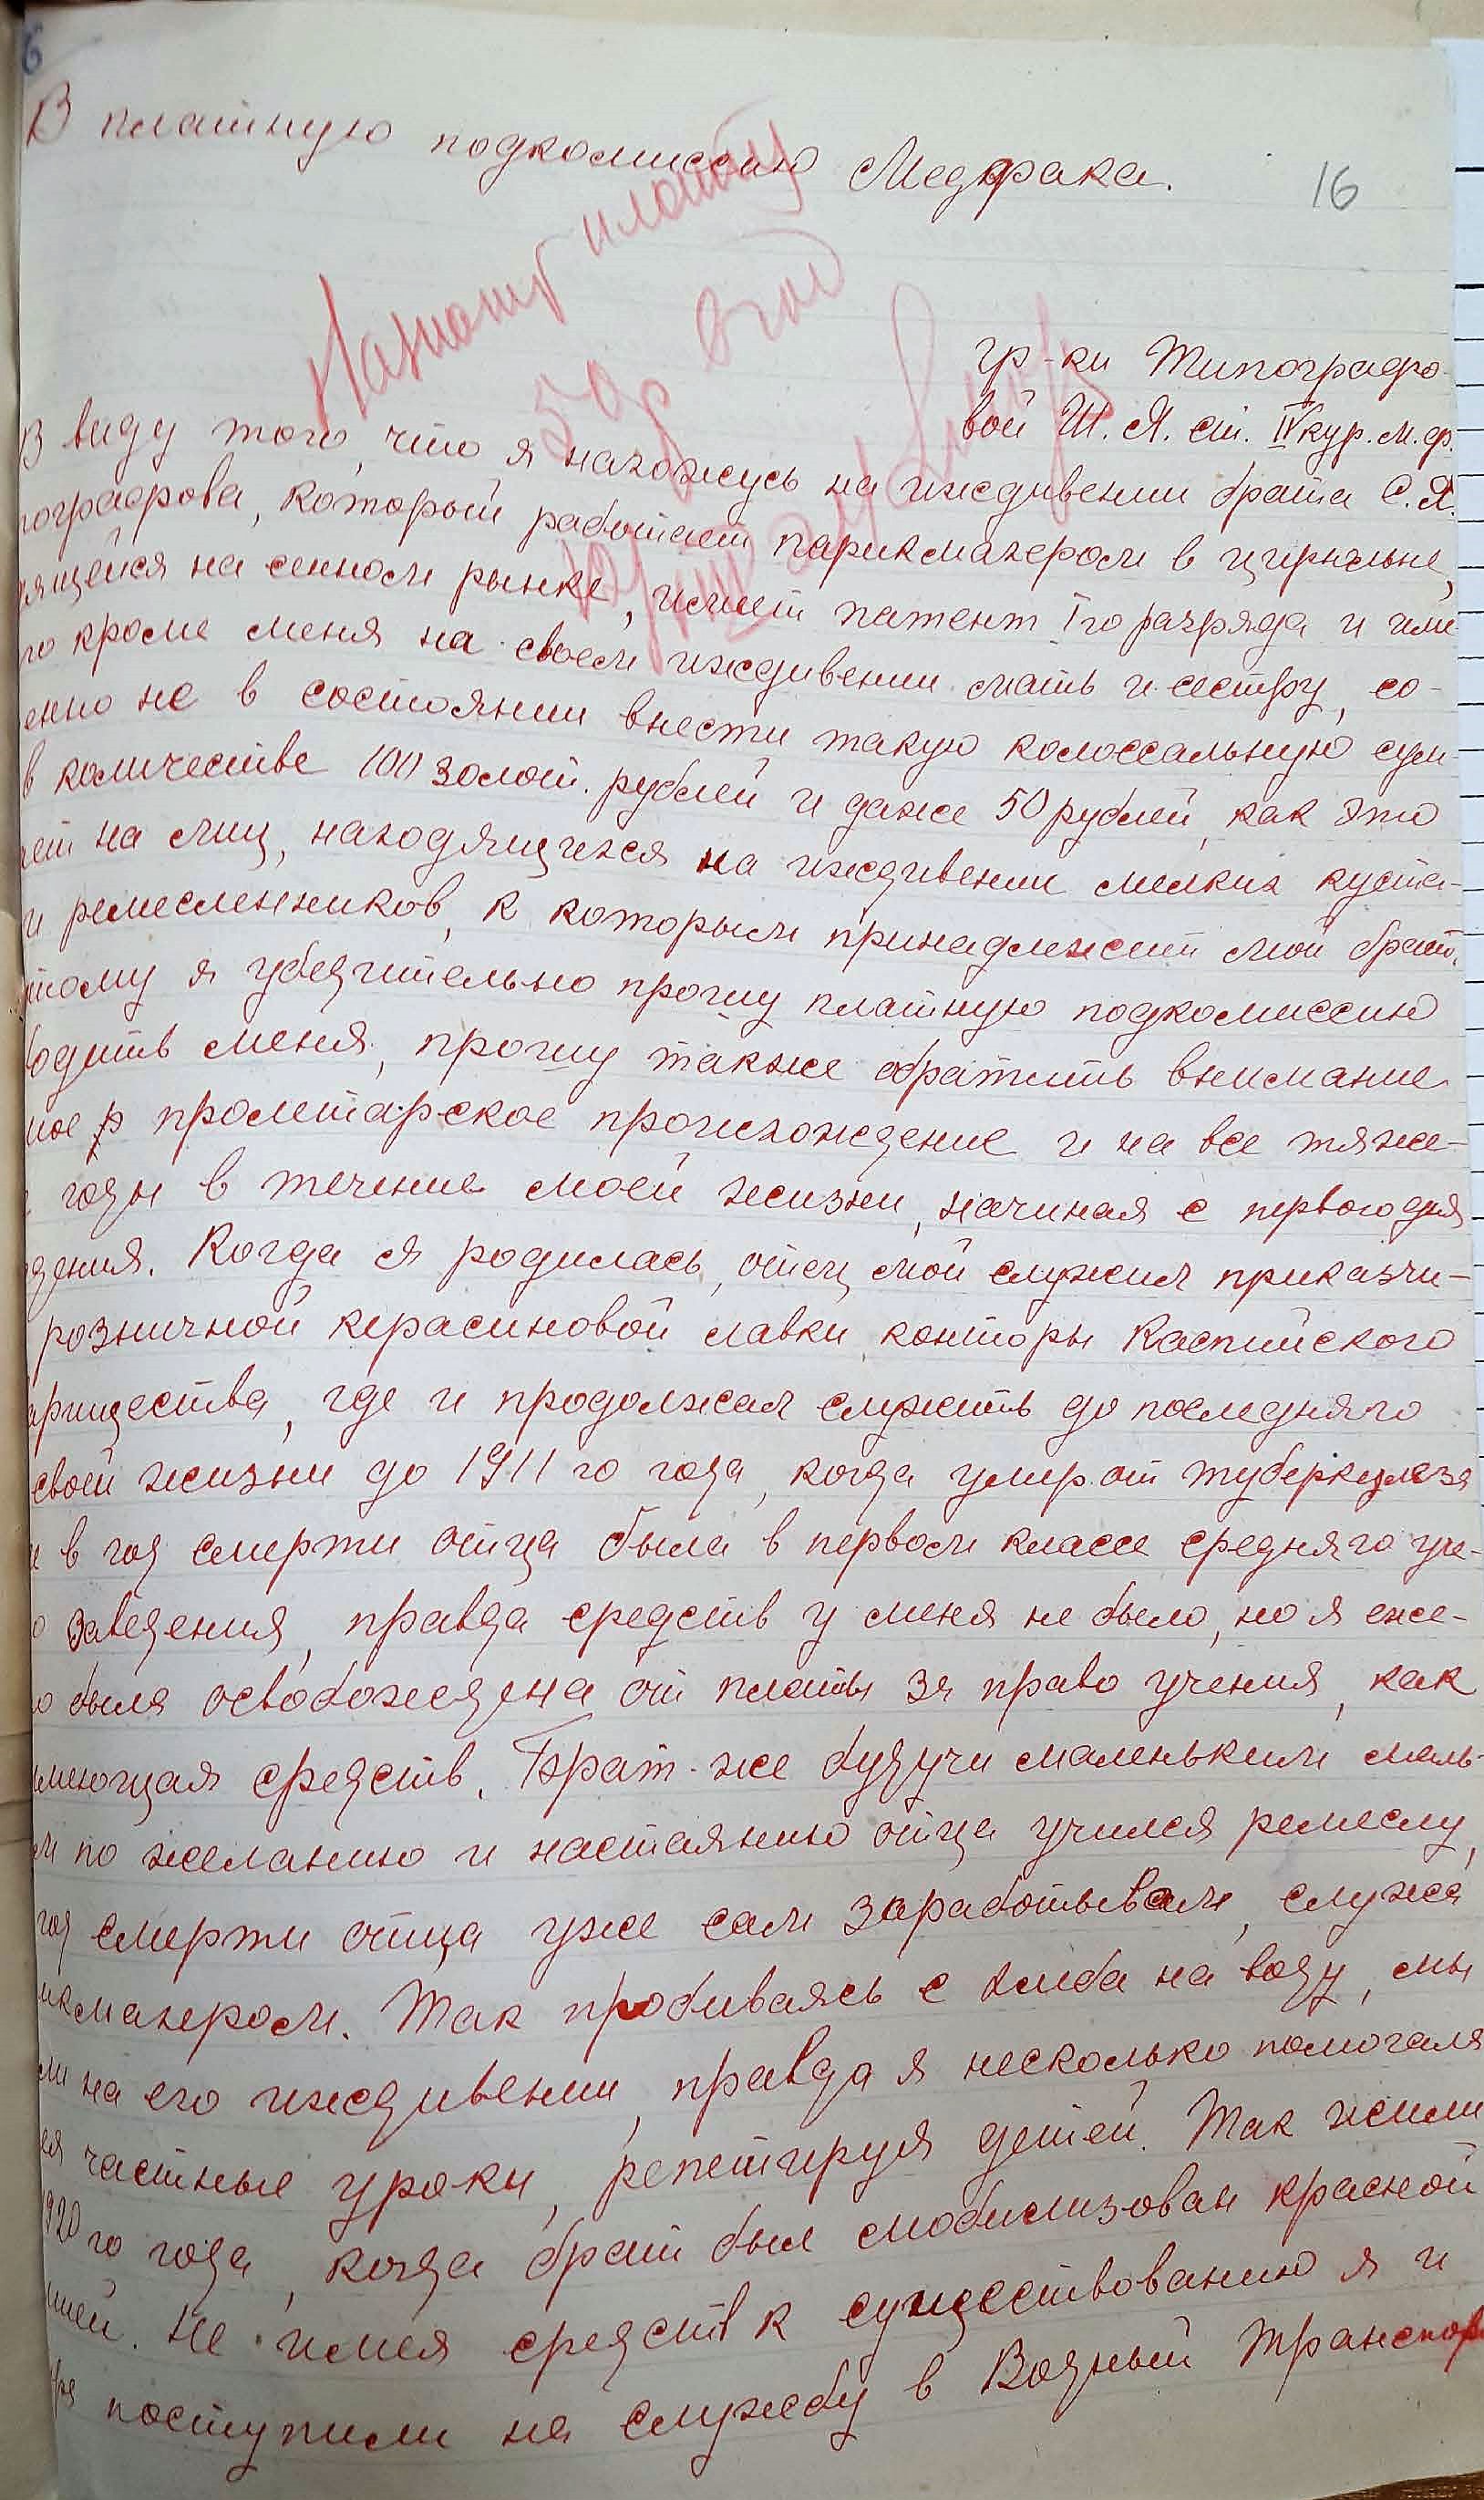 В платную подкомиссию Медфака.
16
Назначит плату
50 р в год
гр-ки Типографо-
вой Ш. Я. ст. IV кур. м. ф.
В виду того, что я нахожусь на иждивении брата С. Я.
пографова, который работает парикмахером в цирюльне,
ящейся на сенном рынке, имеет патент I го разряда и име
го кроме меня на своем иждивении мать и сестру, со-
енно не в состоянии внести такую колоссальную сум-
в количестве 100 золот. рублей и даже 50 рублей, как это
ет на лиц, находящихся на иждивении мелких куста-
и ремесленников, к которым принадлежит мой брат.
этому я убедительно прошу платную подкомиссию
бодить меня, прошу также обратить внимание
мое пролетарское происхождение и на все тяже-
годы в течение моей жизни, начиная с первого дня
дения. Когда я родилась, отец мой служил приказчи-
розничной керасиновой лавки конторы Каспийского
арищества, где и продолжал служить до последняго
своей жизни до 1911 го года, когда умер от туберкулеза
в год смерти отца была в первом классе средняго уче-
о заведения, правда средств у меня не было, но я еже-
о была освобождена от платы за право учения, как
имеющая средств. Брат же будучи маленьким маль-
м по желанию и настаянию отца учился ремеслу,
год смерти отца уже сам зарабатывал, служа
икмахером. Так пробиваясь с хлеба на воду, мы
ли на его иждивении, правда я несколько помогала
ая частные уроки, репетируя детей. Так жили
1920 го года, когда брат был мобилизован красной
мией. Не имея средств к существованию я и
тра поступили на службу в Водный Транспор